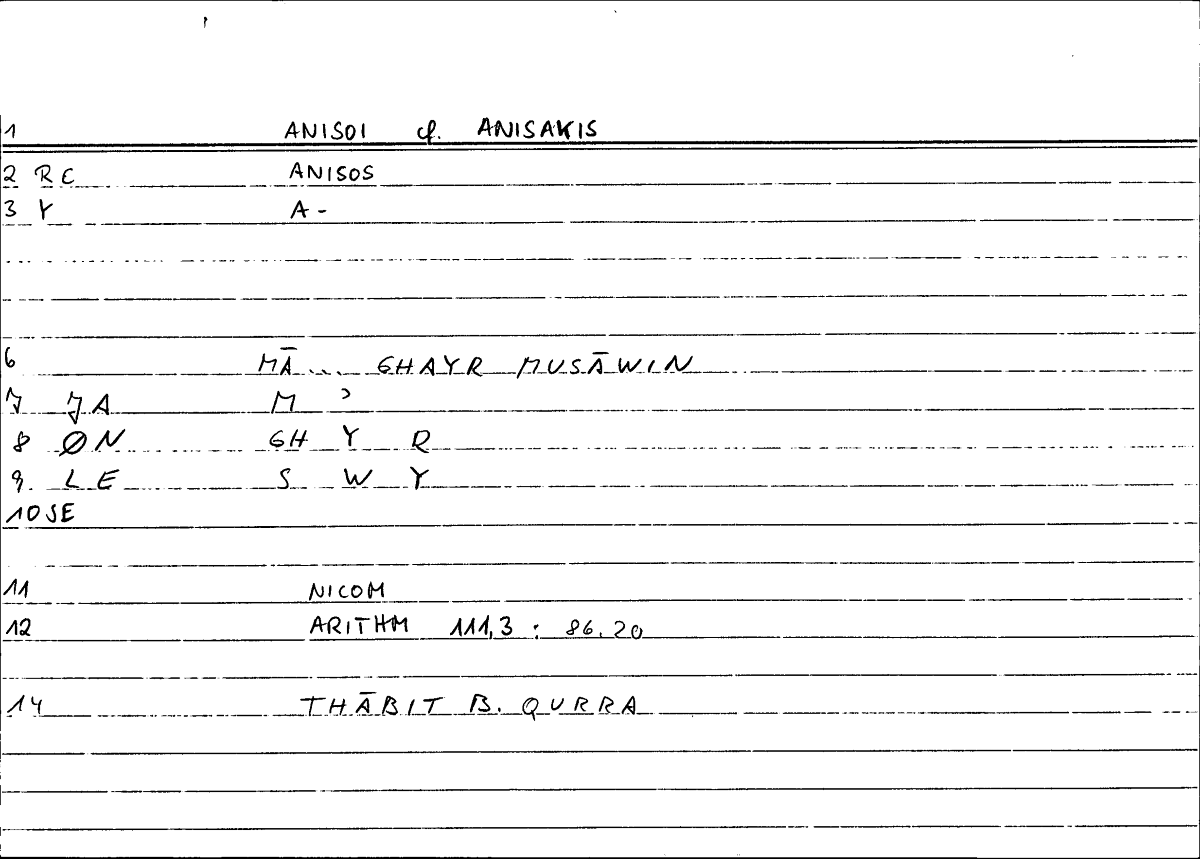 1 ANISOI cf. ANISAKIS
2 RC ANISOS
3 Y A-
6 MĀ... GHAYR MUSĀWIN
7 JA M ʾ
8 ØN GH Y R
9. LE S W Y
10 SE
11 NICOM
12 ARITHM 111,3 : 86.20
14 THĀBIT B. QURRA